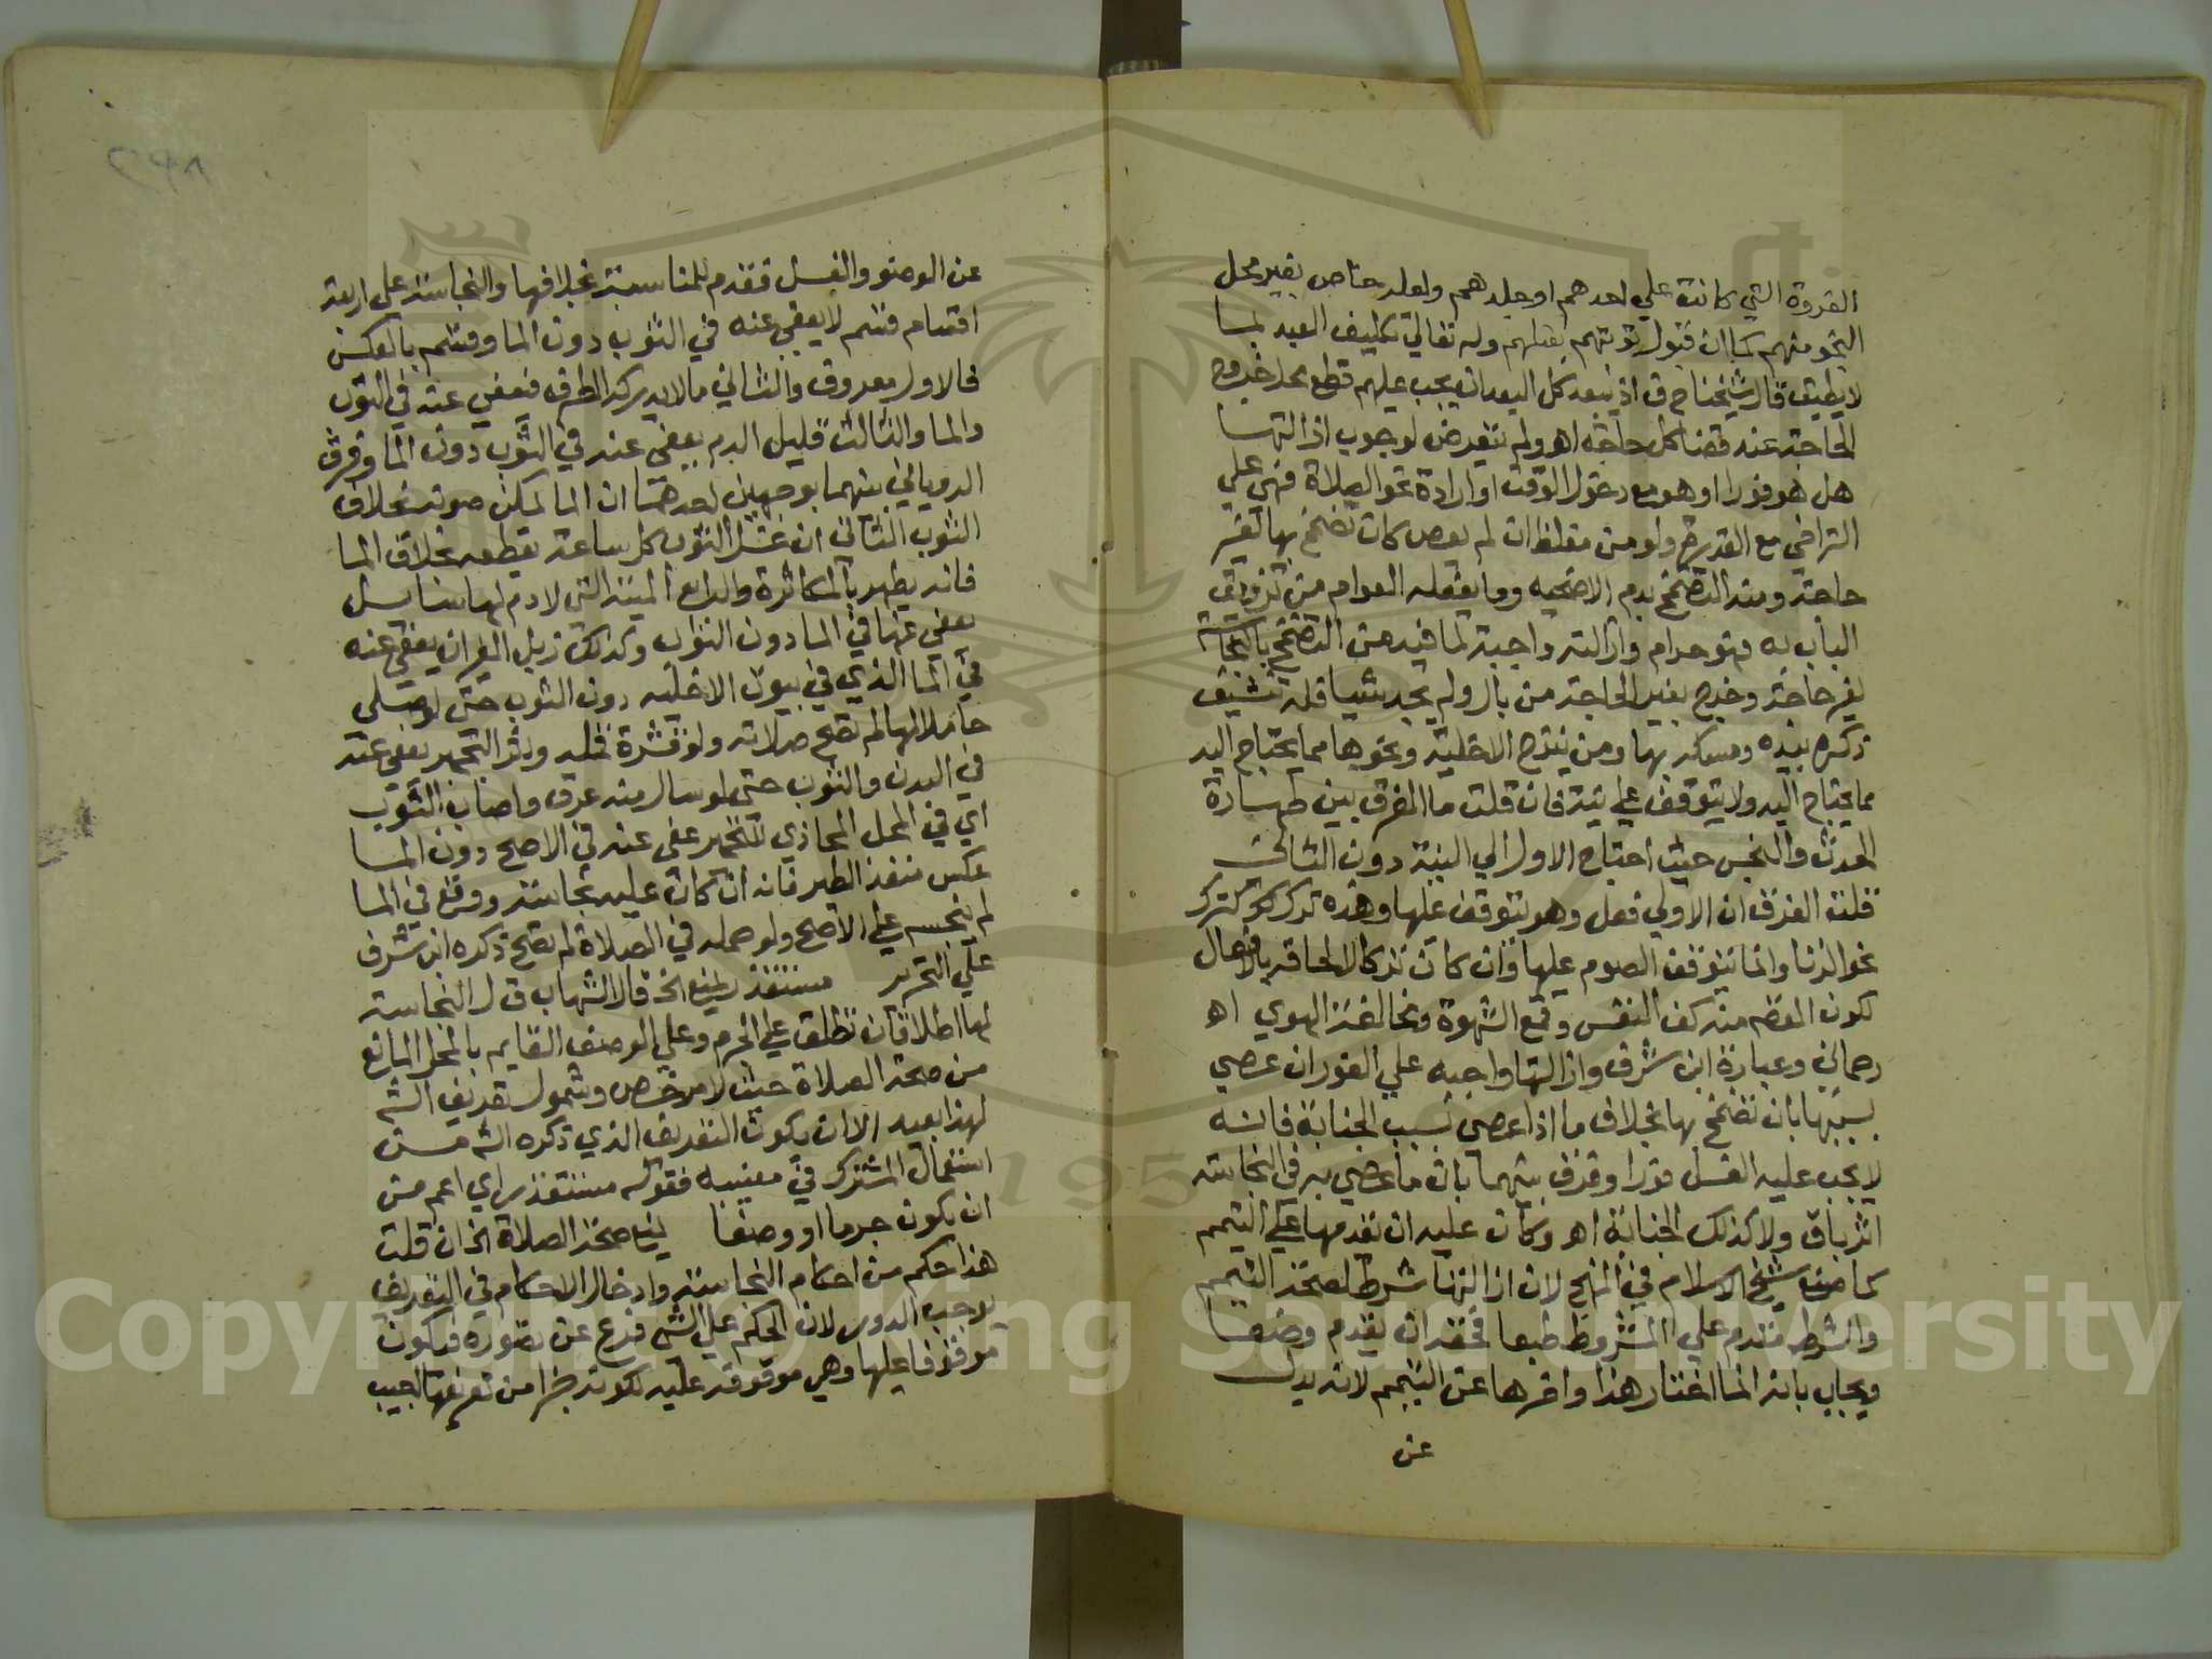 الفروة التي كانت علي احدهم او جلدهم ولعله خاص بغير محل
النجو منهم كما ان قبول توبتهم بقتلهم وله تعالي تكليف العبد بما
لا يطيق قال شيخنا ح ف اذ يبعد كل البعد ان يجب عليهم قطع محل خروج
الحاجة عند قضا كل حاجة اهـ ولم يتعرض لوجوب ازالتها
هل هو فورا او هو مع دخول الوقت او ارادة نحو الصلاة فهي علي
التراخي مع القدرة ولو من مغلظ ان لم يعص كان تضمخ بها لغير
حاجة ومنه التضمخ بدم الاضحيه وما يفعله العوام من تزويق
الباب به فهو حرام وازالته واجبة لما فيه من التضمخ بالنجاسة
لغير حاجة وخرج بغير الحاجة من بال ولم يجد شيا فله تنشيف
ذكره بيده ومسكه بها ومن ينزح الاخلية ونحوها مما يحتاج اليه
مما يحتاج اليه ولا يتوقف علي نية فان قلت ما الفرق بين طهارة
الحدث والنجس حيث احتاج الاول الي النية دون الثاني
قلت الفرق ان الاولي فعل وهو يتوقف عليها وهذه ترك كترك
نحو الزنا وانما يتوقف الصوم عليها وان كان تركا لالحاقه بالافعال
لكون القصد منه كف النفس وقمع الشهوة ومخالفة الهوي اهـ
رحماني وعبارة ابن شرف وازالتها واجبه علي الفور ان عصي
بسببها بان تضمخ بها بخلاف ما اذا عصي بسبب الجنابة فانه
لا يجب عليه الغسل فورا وفرق بينهما بان ما عصي به في النجاسة
اثر باق ولا كذلك الجنابة اهـ وكان عليه ان يقدمها علي التيمم
كما صنع شيخ الاسلام في المنهج لان ازالتها شرط لصحة التيمم
والشرط مقدم علي المشروط طبعا فحقه ان يقدم وضعا
ويجاب بانه انما اختار هذا واخرها عن التيمم لانه بدل
عن
عن الوضو والغسل فقدم للمناسبة بخلافها والنجاسة علي اربعة
اقسام قسم لا يعفي عنه في الثوب دون الما وقسم بالعكس
فالاول معروف والثاني ما لا يدركه الطرف فيعفي عنه في الثوب
والما والثالث قليل الدم يعفي عنه في الثوب دون الما وفرق
الروياني بينهما بوجهين احدهما ان الما يمكن صونه بخلاف
الثوب الثاني ان غسل الثوب كل ساعة يقطعه بخلاف الما
فانه يطهر بالمكاثرة والرابع الميتة التي لا دم لها سايل
يعفي عنها في الما دون الثوب وكذلك زبل الفيران يعفي عنه
في الما الذي في بيوت الاخلية دون الثوب حتي لو صلي
حاملا لها لم تصح صلاته ولو قشرة قمله واثر التجمير يعفي عنه
في البدن والثوب حتي لو سال منه عرق واصاب الثوب
اي في المحل المحاذي للتجمير عفي عنه في الاصح دون الما
عكس منفذ الطير فانه ان كان عليه نجاسة ووقع في الما
لم ينجسه علي الاصح ولو حمله في الصلاة لم تصح ذكره ابن شرف
علي التحرير مستقذر يمنع الخ قال الشهاب ق ل النجاسة
لها اطلاقان تطلق علي الجرم وعلي الوصف القايم بالمحل المانع
من صحة الصلاة حيث لا مرخص وشمول تعريف الش
لهذا بعيد الا ان يكون التعريف الذي ذكره الش من
استعمال المشترك في معنييه فقوله مستقذر اي اعم من
ان يكون جرما او وصفا يمنع صحة الصلاة الخ ان قلت
هذا حكم من احكام النجاسة وادخال الاحكام في التعريف
يوجب الدور لان الحكم علي الشي فرع عن تصوره فيكون
موقوفا عليها وهي موقوفة عليه لكونه جزا من تعريفها اجيب
Copyright © King Saud University
1957